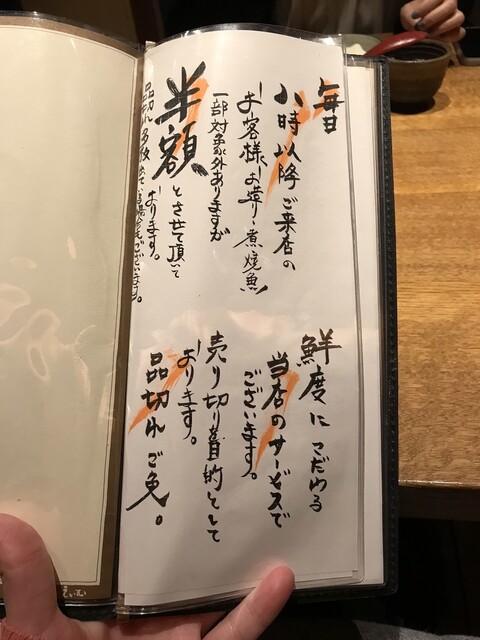 毎日
八時以降ご来店の
お客様、お造り・煮焼魚
一部対象外ありますが
半額
とさせて頂いて
おります。
品切れ多数出ている場合もございます。
鮮度にこだわる
当店のサービスで
ございます。
売り切り目的として
おります。
品切れご免。